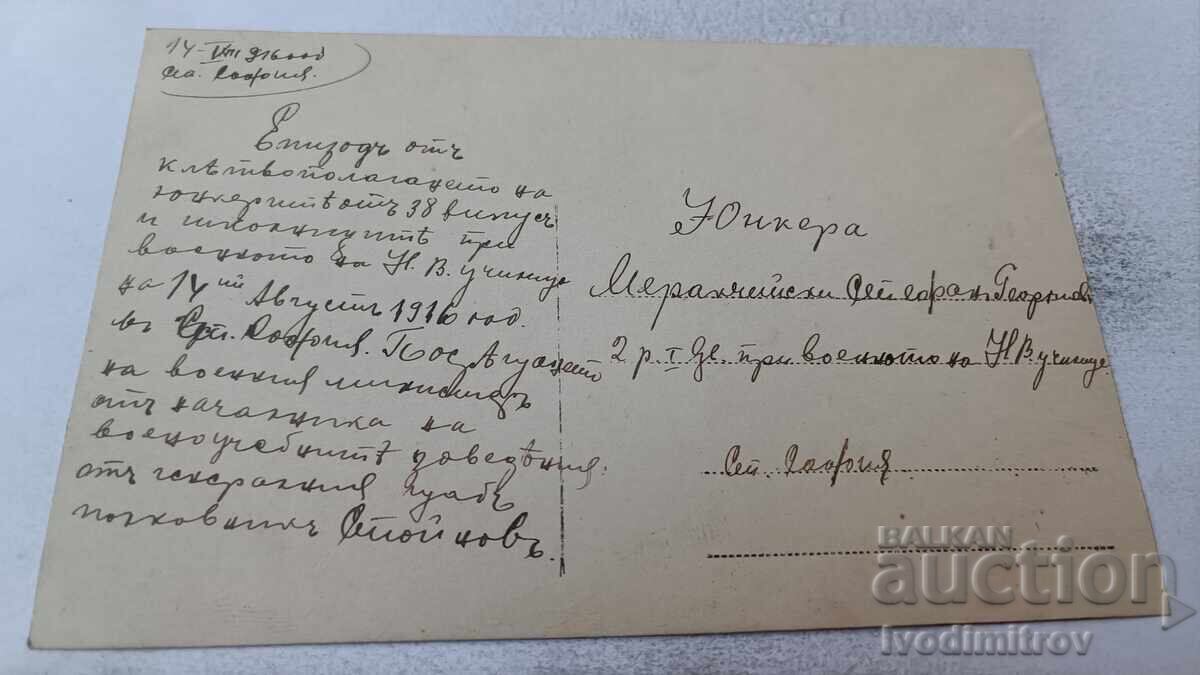 14-VIII 916 год
гр. София.
Епизодъ отъ
клѣтвополагането на
юнкеритѣ отъ 38 випускъ
и школницитѣ при
военното на Н. В. училище
на 14ий Августъ 1916 год.
въ гр. София. Посрѣщането
на военния министъръ
отъ началника на
военоучебнитѣ заведѣния:
отъ генералния щабъ
полковникъ Стойновъ.
Юнкера
Меракчийски Стефанъ Георгиевъ
2 р. I вз. при военното на Н. В. училище
гр. София
BALKAN
auction
ivodimitrov